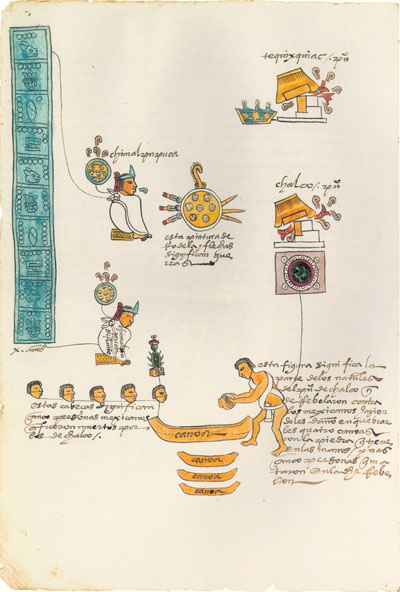 tequixquiac / puo
chimalpupuca
chalco / puo
esta pintura de
Rodela y flechas
significan gue
rra
x. años
esta figura significa la
parte de los naturales
del puo de chalco q
se Rebelaron contra
los mexicanos hazien
doles daño en quebrar
les quatro canoas
con la piedra q tiene
en las manos y mas
cinco personas q ma
taron en la dha Rebe
lion
estas cabeças significan
cinco personas mexicanos
q fueron muertos por
los de chalco /
canoa
canoa
canoa
canoa